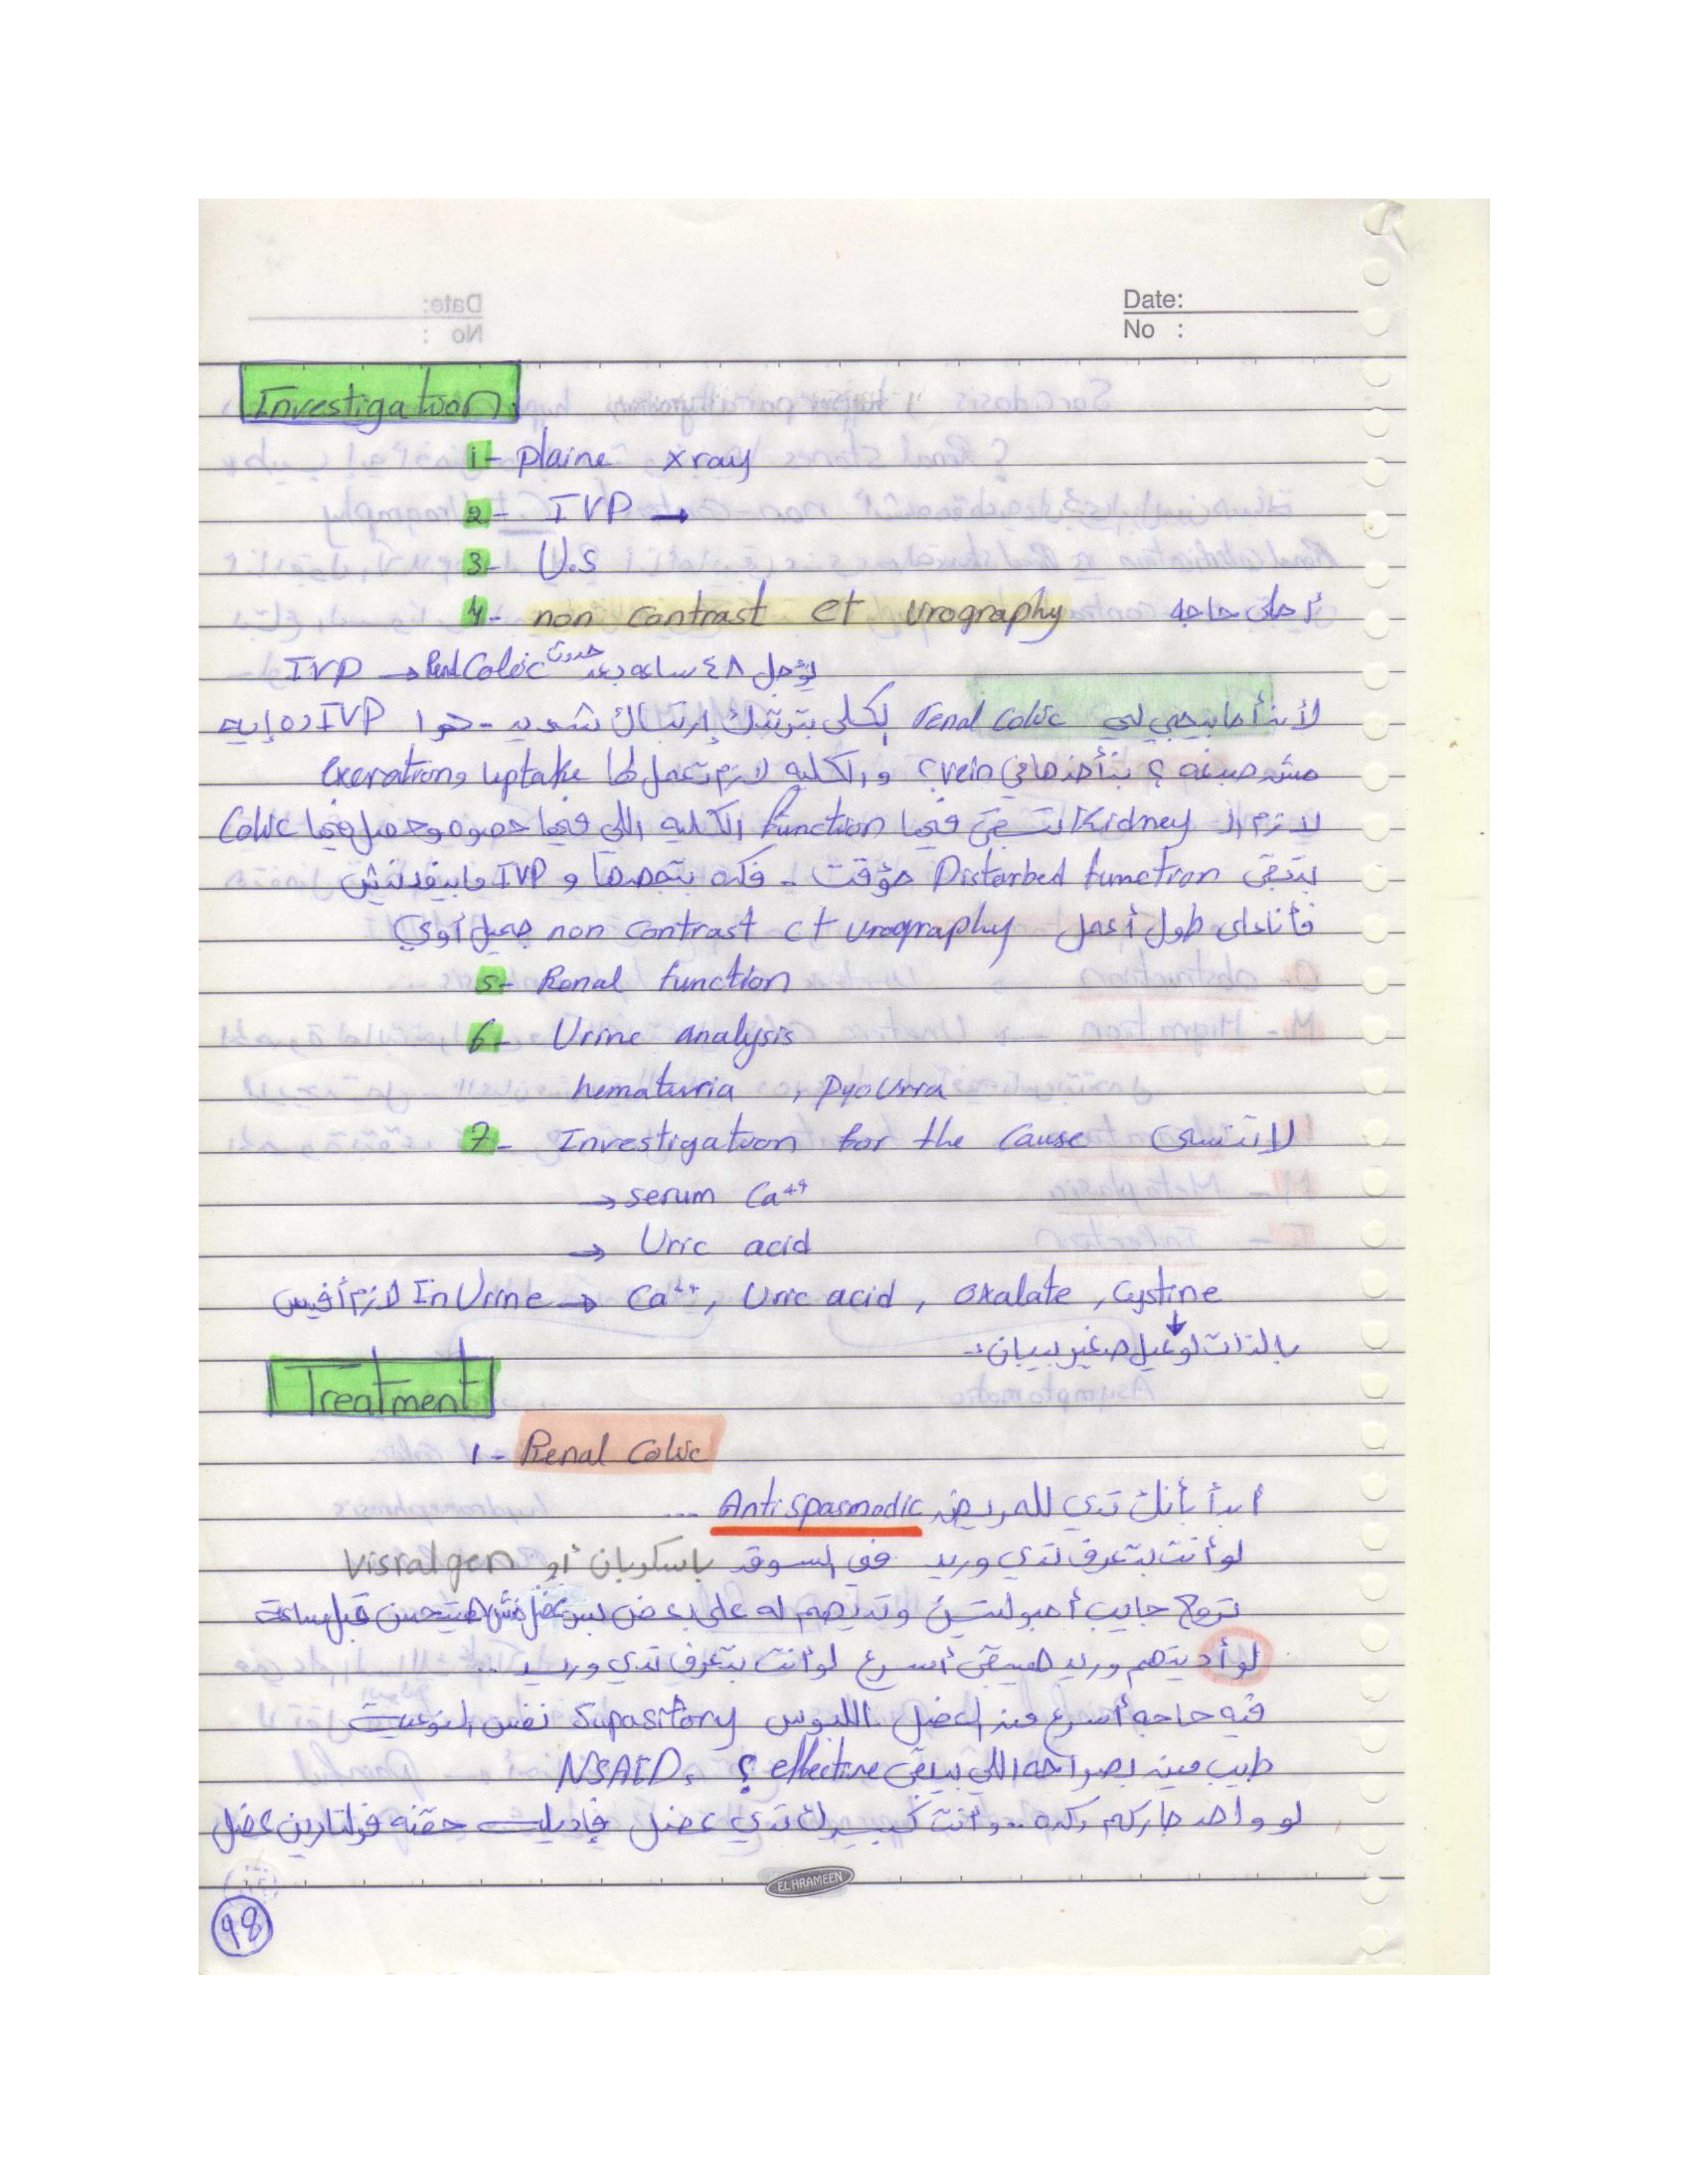 Date:
No :
Investigation
1- plaine xray
2- IVP →
3- U.S
4- non contrast ct urography أحلى حاجه
IVP → Renal Colic يؤجل ٤٨ ساعه بعد حدوث
لأنه أما بيجي لي renal colic الكلى بترتبك إرتباك شديد - هوا IVP ده إيه
مش صبغه ؟ بتأخدها في vein ؟ والكليه لازم تعمل لها uptake
لازم الـ Kidney تبقى فيها function الكليه اللي فيها حصوه وحصل فيها Colic
بتبقى Disturbed function مؤقت - فكده بتجهدها و IVP مابيفدنيش
فأنا على طول أعمل non contrast ct urography جميل أوي
5- Renal function
6- Urine analysis
hematuria , pyouria
7- Investigation for the cause لا تنسى
→ serum Ca++
→ Uric acid
لازم أقيس In Urine → Ca++, Uric acid , oxalate , cystine
بالذات لو عيل صغير بيبان :-
Treatment
1- Renal Colic
أبدأ بأنك تدي للمريض Antispasmodic ...
لو أنت بتعرف تدي وريد في السوق باسكوبان أو Visralgen
تروح جايب أمبولتين وتديهم له على بعض بس عضل مش هيتحسن قبل ساعة
لو أديتهم وريد هيبقى أسرع لو أنت بتعرف تدي وريد ..
فيه حاجه أسرع من العضل .. اللبوس Supasitory نفس النوعيت
طيب مين بصراحه اللي بيبقى effective ؟ NSAID
لو واحد جاركم كده .. وأنت كبيرك تدي عضل فإديله حقنه فولتارين عضل
EL HRAMEEN
98